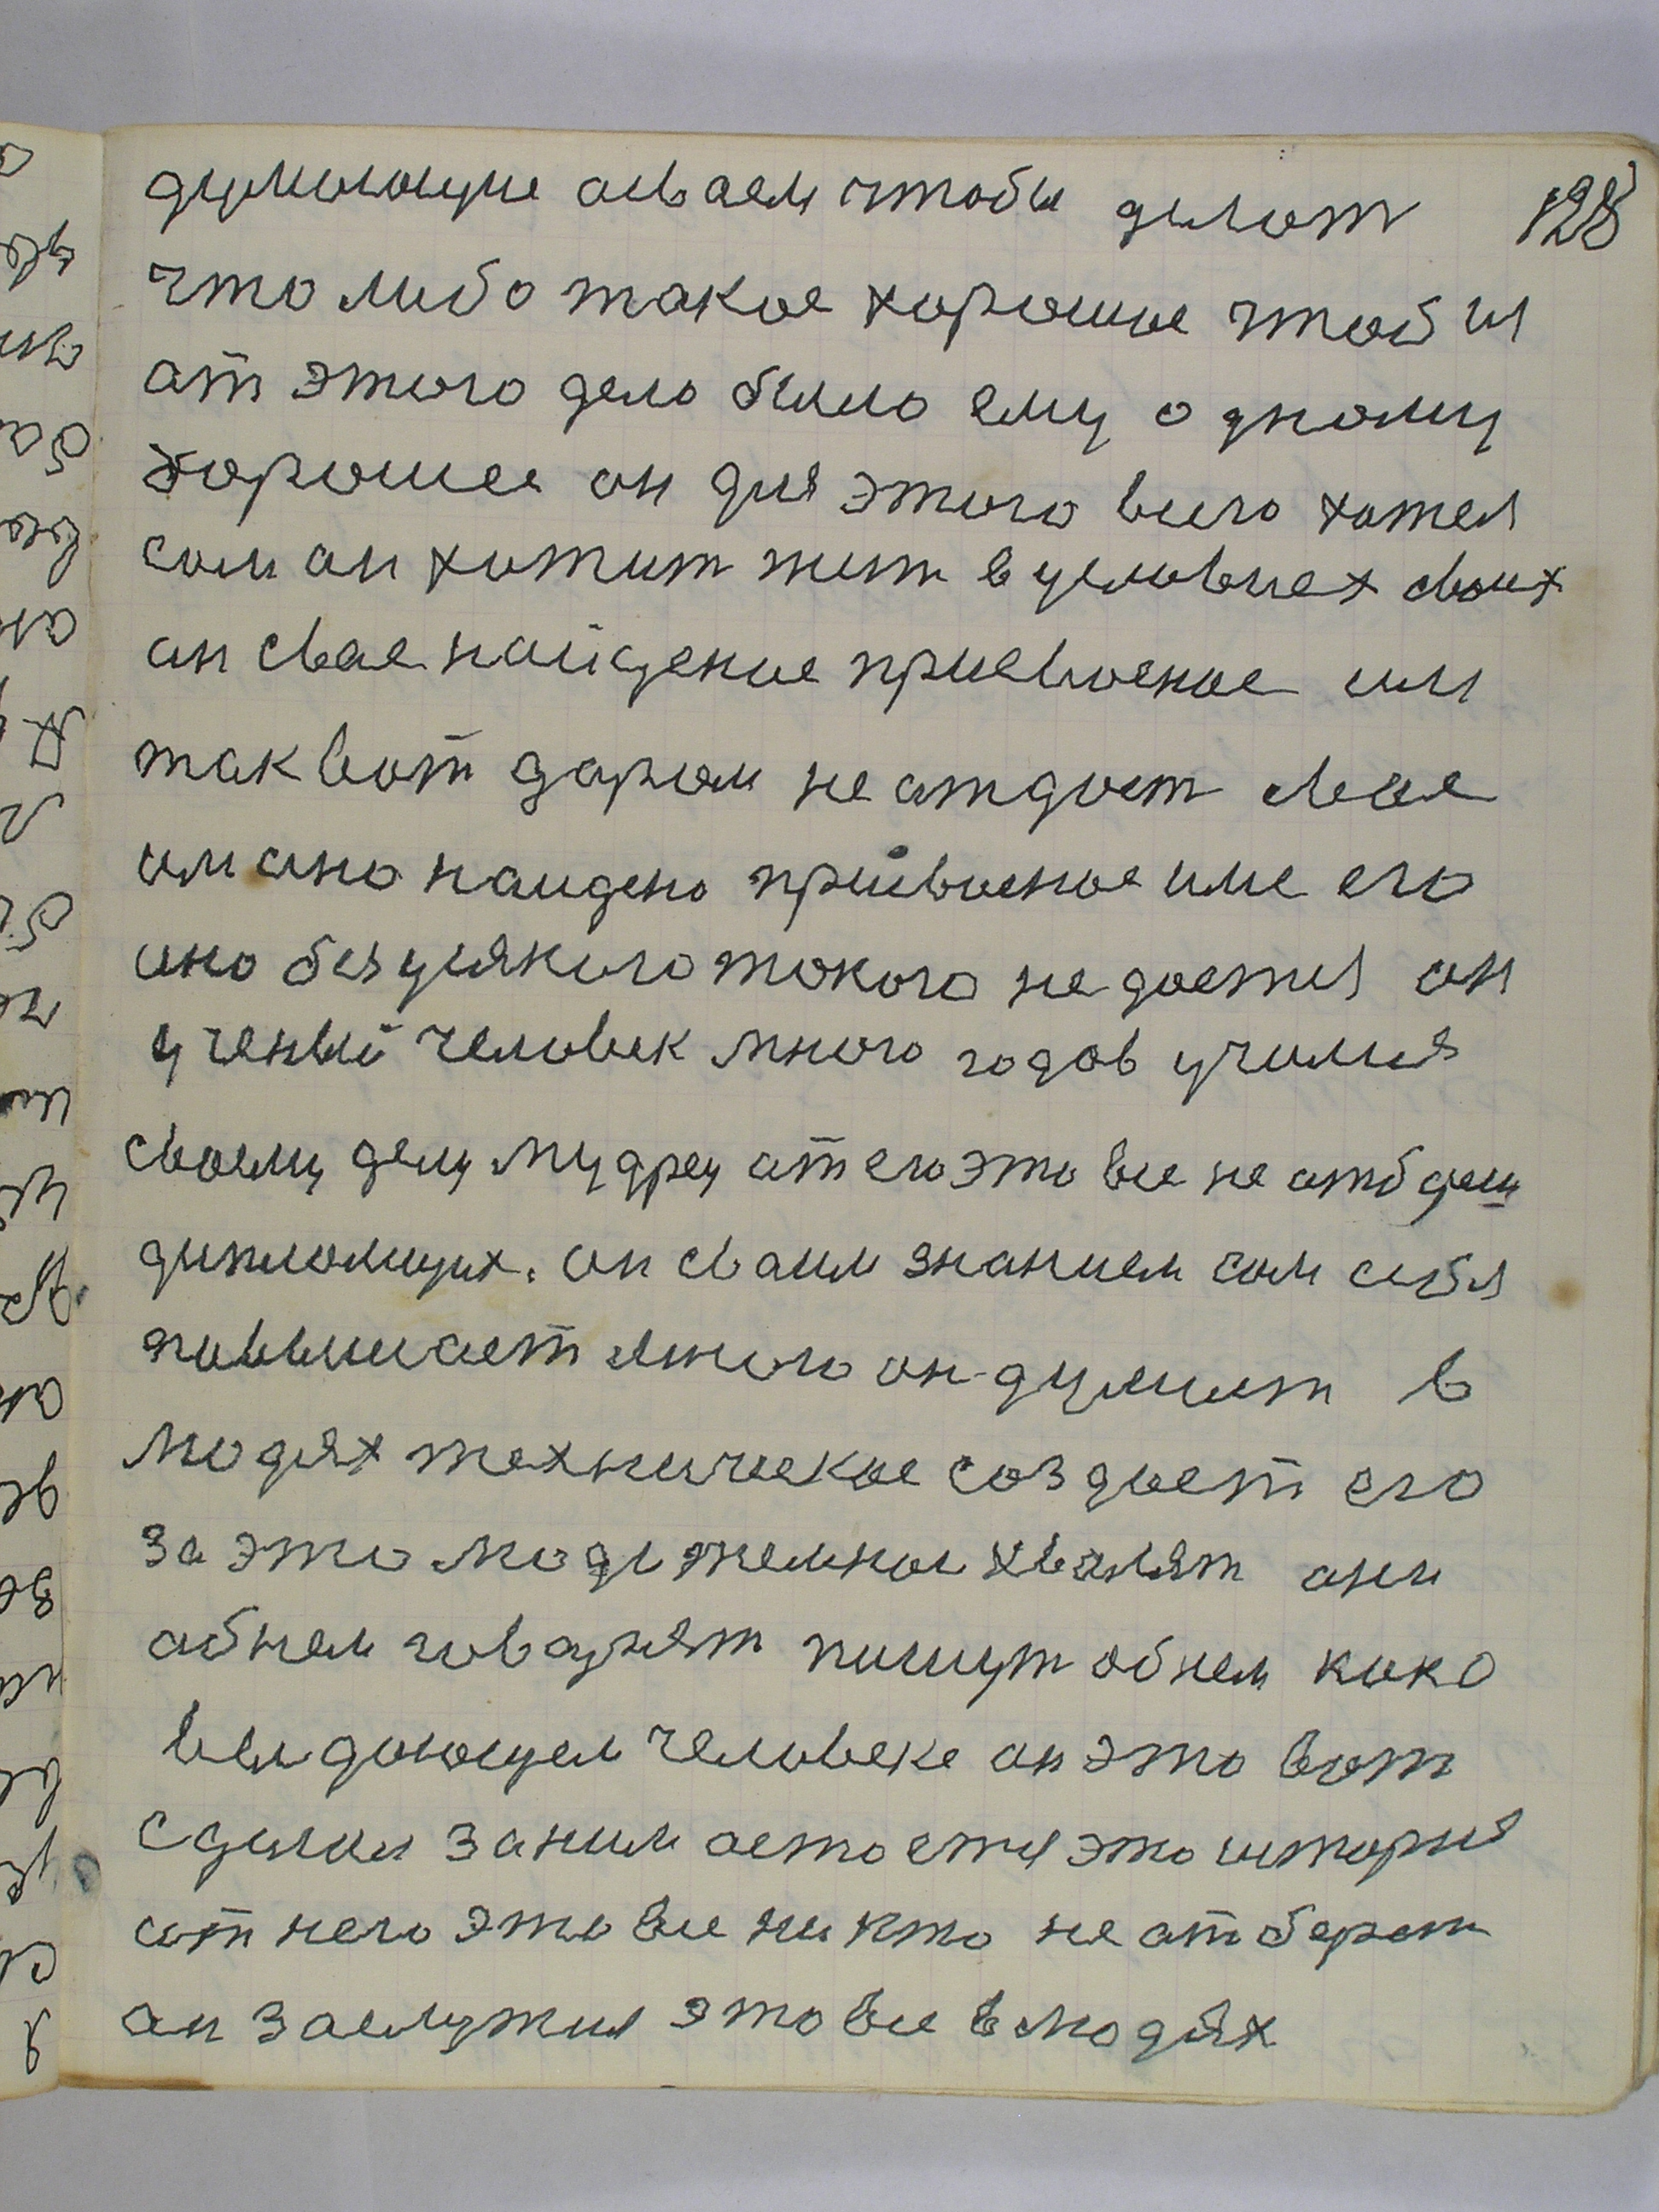 думающие асваем чтобы делат 128
что либо такое хорошые чтобы
от этого дело было ему одному
хорошее он для этого висго хотел
сам он хотит жит в условиех своих
он свае найденое присвоеное им
так вот даром не атдает свое
им оно наидено присвоеное име его
оно без усякого токого не даетця он
ученый человек много годов учился
своему делу мудрец от его это все не отбереш
он сваим знанием сам себя
повышает много он думаит в
людях техническое создает его
за это люди хвалят они
об нем говарят пишут об нем как о
выдающем человеке он это вот
сделал за ним остоетця это история
от него это все никто не отберет
он заслужил это все в людях